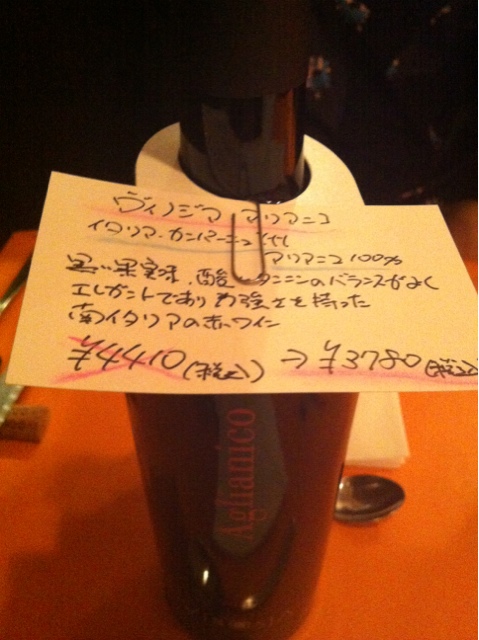 ヴィノジア アリアニコ
イタリア.カンパーニュ州
アリアニコ100%
黒い果実味、酸とタンニンのバランスがよく
エレガントであり力強さを持った
南イタリアの赤ワイン
¥4410(税込) → ¥3780(税込)
Aglianico